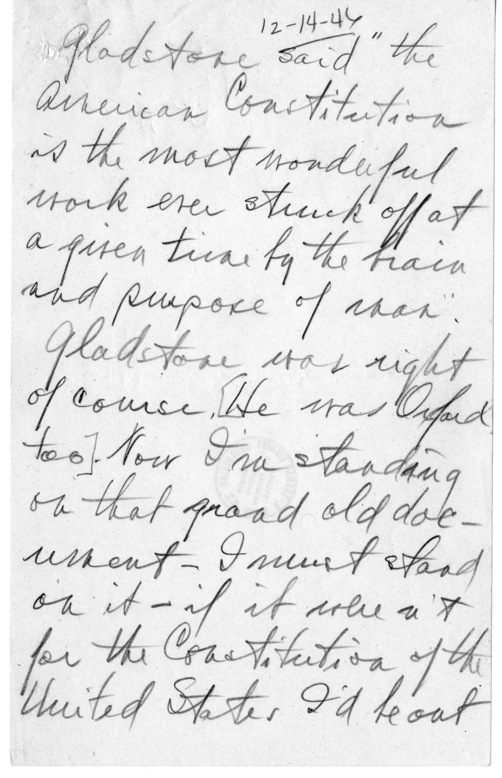 12-14-46
Gladstone said "the
American Constitution
is the most wonderful
work ever struck off at
a given time by the brain
and purpose of man".
Gladstone was right
of course. [He was Oxford
too]. Now I'm standing
on that grand old doc-
ument - I must stand
on it - if it were n't
for the Constitution of the
United States I'd be out